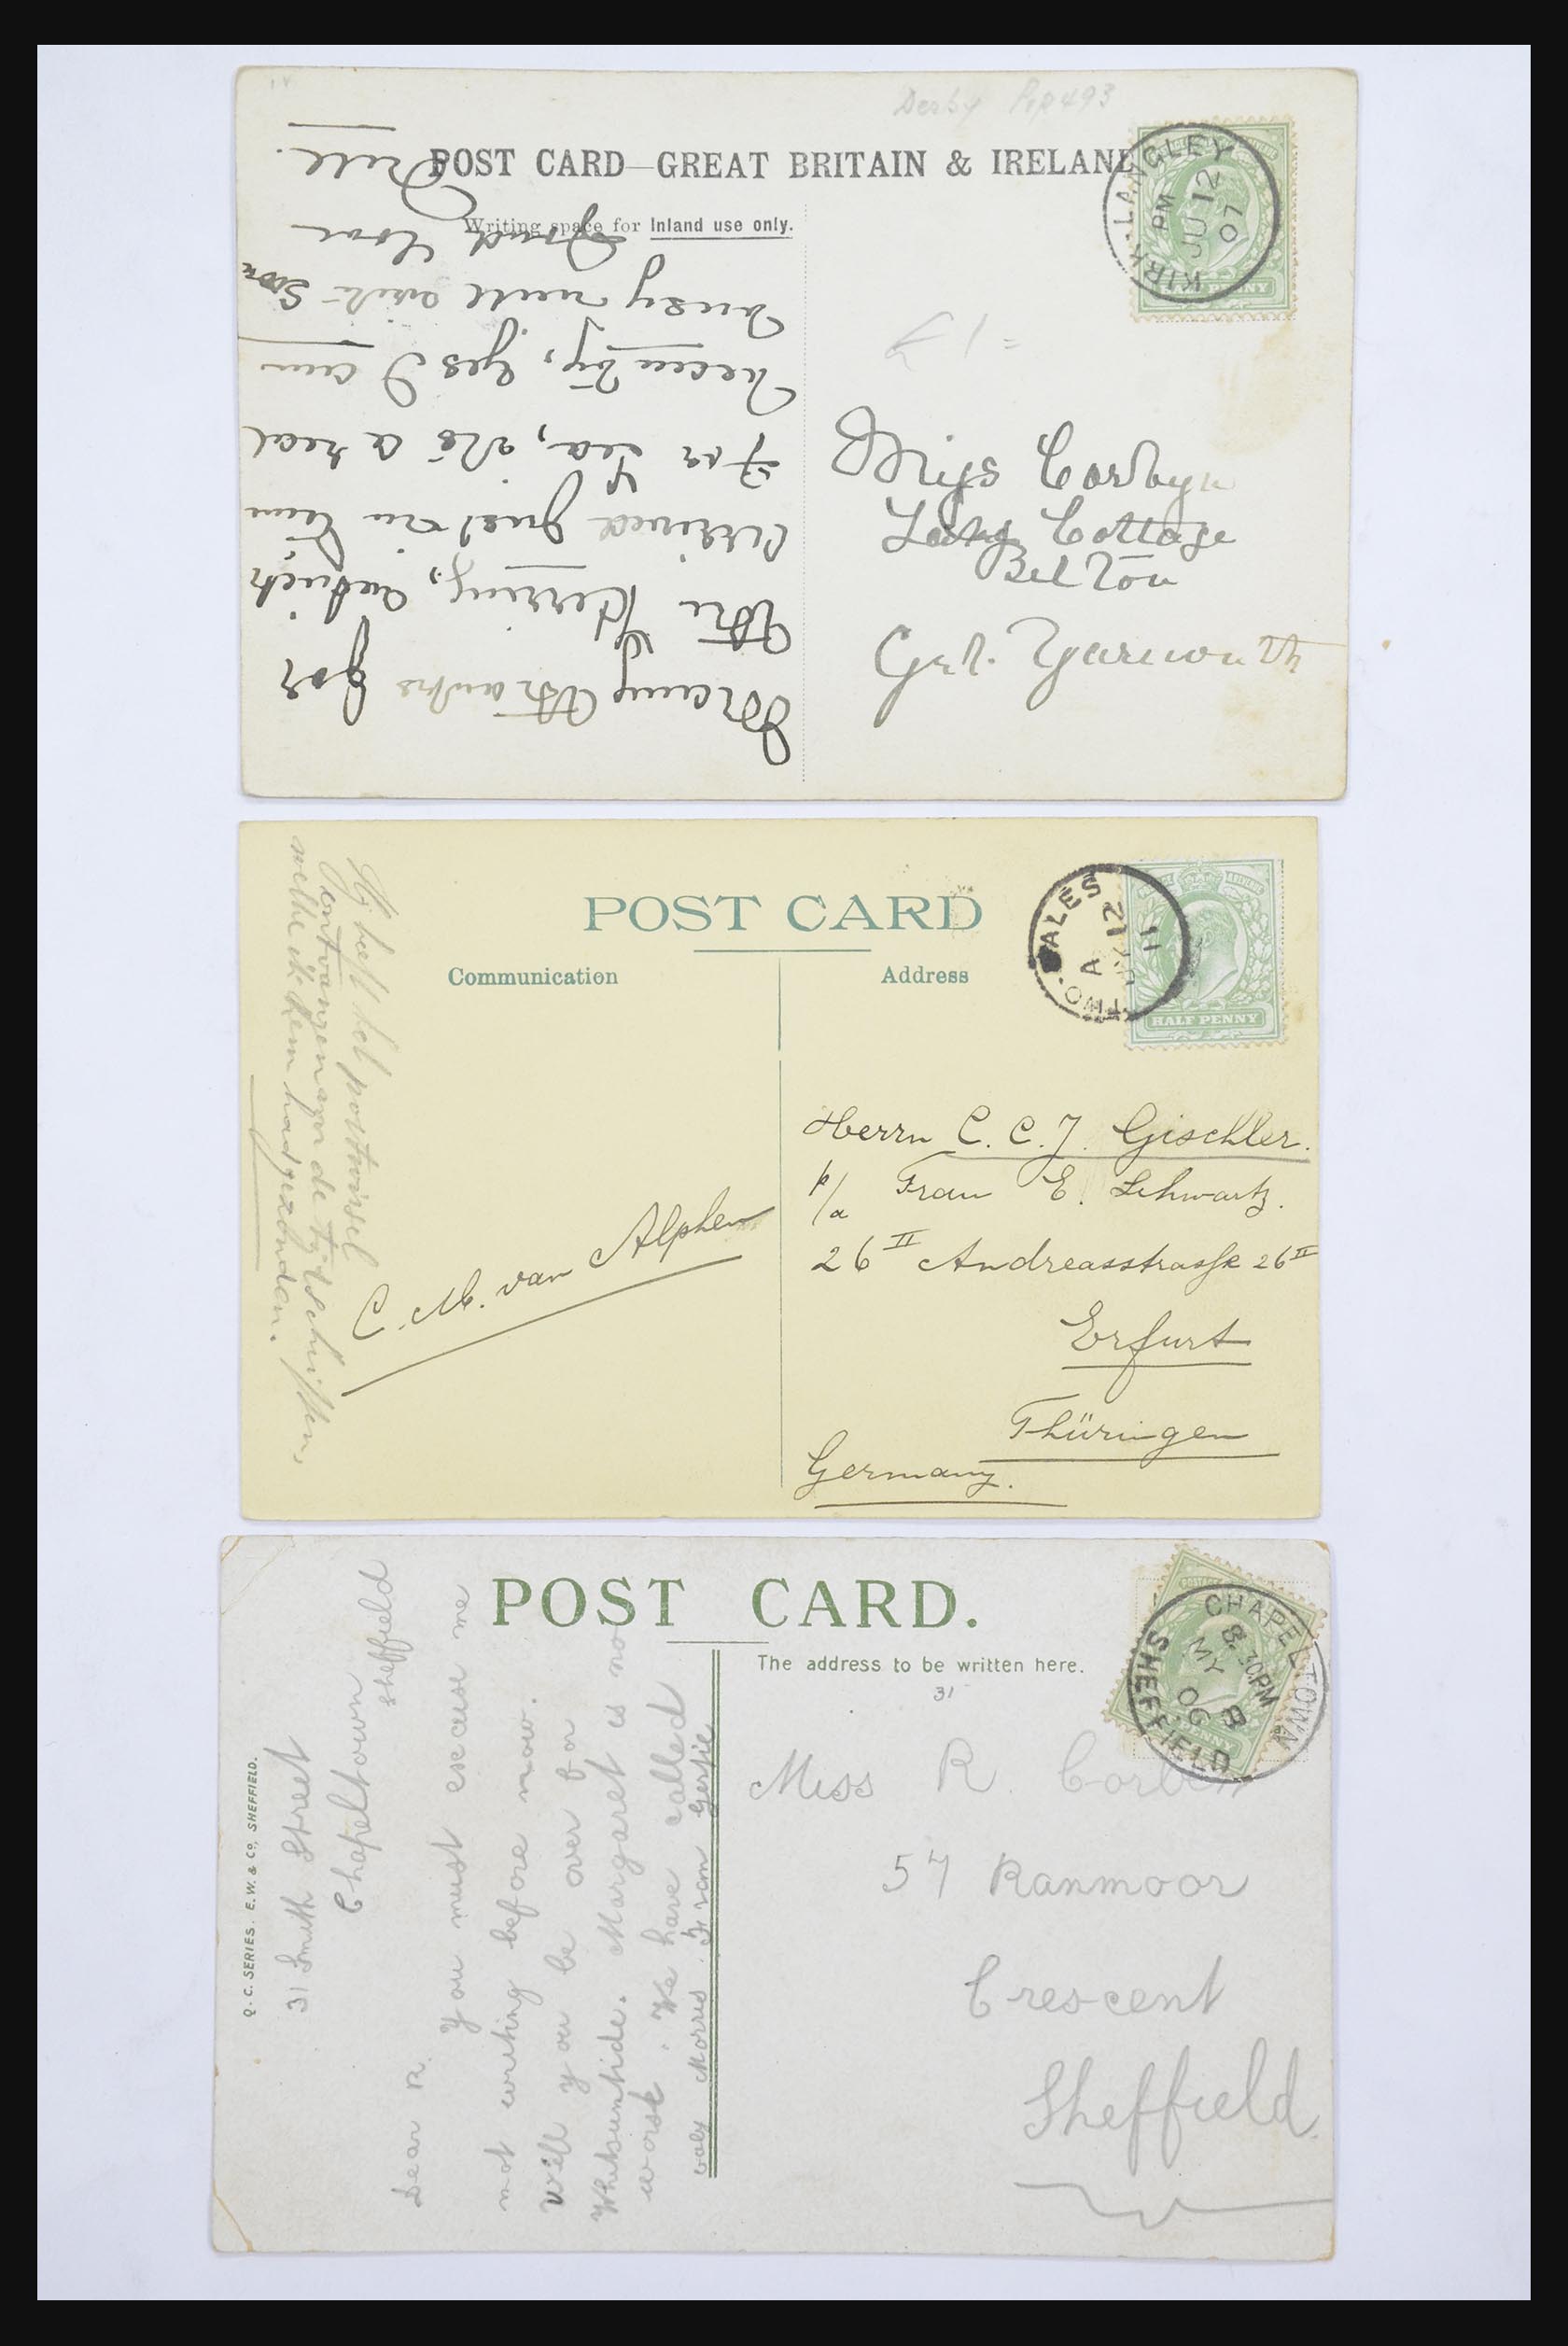 Derby
POST CARD—GREAT BRITAIN & IRELAND
Writing space for Inland use only.
KIRK-LANGLEY
PM
JU 12
07
HALF PENNY
£1 =
Many thanks for
the Herring, which
arrived just in time
for tea, the a real
beauty, yes I am
will write soon
Fond love
Miss Corbyn
Cottage
Belton
Grt. Yarmouth
POST CARD
Communication
Address
A
12
11
HALF PENNY
Hij heeft het postwissel
ontvangen en de tijdschriften,
welke ik hem had gezonden.
C. M. van Alphen
Herrn C. C. J. Gischler.
p/a Frau E. Schwartz.
26 II Andreasstrasse 26 II
Erfurt
Thüringen
Germany.
POST CARD.
The address to be written here.
31
CHAPELTOWN
SHEFFIELD
8.30PM
MY 8
06
Q. C. SERIES. E. W. & Co, SHEFFIELD.
31 Smith Street
Chapeltown
Sheffield
Dear R.
You must excuse me
not writing before now.
Will you be over for
Whitsuntide. Margaret is no
worse. We have called
baby Morris. From Gertie
Miss R. Corben
57 Ranmoor
Crescent
Sheffield